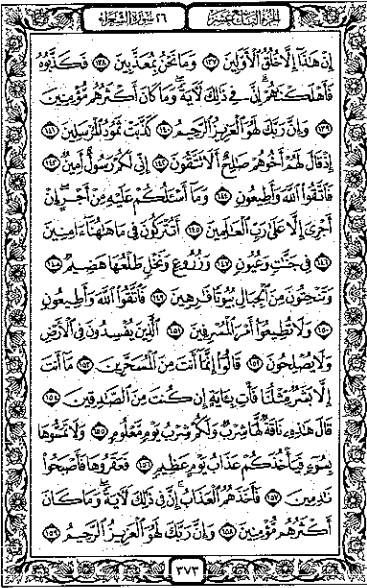 الجزء التاسع عشر ٢٦ سورة الشعراء
إِنْ هَٰذَآ إِلَّا خُلُقُ ٱلْأَوَّلِينَ ١٣٧ وَمَا نَحْنُ بِمُعَذَّبِينَ ١٣٨ فَكَذَّبُوهُ
فَأَهْلَكْنَٰهُمْ إِنَّ فِى ذَٰلِكَ لَءَايَةً وَمَا كَانَ أَكْثَرُهُم مُّؤْمِنِينَ
١٣٩ وَإِنَّ رَبَّكَ لَهُوَ ٱلْعَزِيزُ ٱلرَّحِيمُ ١٤٠ كَذَّبَتْ ثَمُودُ ٱلْمُرْسَلِينَ ١٤١
إِذْ قَالَ لَهُمْ أَخُوهُمْ صَٰلِحٌ أَلَا تَتَّقُونَ ١٤٢ إِنِّى لَكُمْ رَسُولٌ أَمِينٌ ١٤٣
فَٱتَّقُوا۟ ٱللَّهَ وَأَطِيعُونِ ١٤٤ وَمَآ أَسْـَٔلُكُمْ عَلَيْهِ مِنْ أَجْرٍ إِنْ
أَجْرِىَ إِلَّا عَلَىٰ رَبِّ ٱلْعَٰلَمِينَ ١٤٥ أَتُتْرَكُونَ فِى مَا هَٰهُنَآ ءَامِنِينَ
١٤٦ فِى جَنَّٰتٍ وَعُيُونٍ ١٤٧ وَزُرُوعٍ وَنَخْلٍ طَلْعُهَا هَضِيمٌ ١٤٨
وَتَنْحِتُونَ مِنَ ٱلْجِبَالِ بُيُوتًا فَٰرِهِينَ ١٤٩ فَٱتَّقُوا۟ ٱللَّهَ وَأَطِيعُونِ
١٥٠ وَلَا تُطِيعُوٓا۟ أَمْرَ ٱلْمُسْرِفِينَ ١٥١ ٱلَّذِينَ يُفْسِدُونَ فِى ٱلْأَرْضِ
وَلَا يُصْلِحُونَ ١٥٢ قَالُوٓا۟ إِنَّمَآ أَنتَ مِنَ ٱلْمُسَحَّرِينَ ١٥٣ مَآ أَنتَ
إِلَّا بَشَرٌ مِّثْلُنَا فَأْتِ بِـَٔايَةٍ إِن كُنتَ مِنَ ٱلصَّٰدِقِينَ ١٥٤
قَالَ هَٰذِهِۦ نَاقَةٌ لَّهَا شِرْبٌ وَلَكُمْ شِرْبُ يَوْمٍ مَّعْلُومٍ ١٥٥ وَلَا تَمَسُّوهَا
بِسُوٓءٍ فَيَأْخُذَكُمْ عَذَابُ يَوْمٍ عَظِيمٍ ١٥٦ فَعَقَرُوهَا فَأَصْبَحُوا۟
نَٰدِمِينَ ١٥٧ فَأَخَذَهُمُ ٱلْعَذَابُ إِنَّ فِى ذَٰلِكَ لَءَايَةً وَمَا كَانَ
أَكْثَرُهُم مُّؤْمِنِينَ ١٥٨ وَإِنَّ رَبَّكَ لَهُوَ ٱلْعَزِيزُ ٱلرَّحِيمُ ١٥٩
٣٧٣